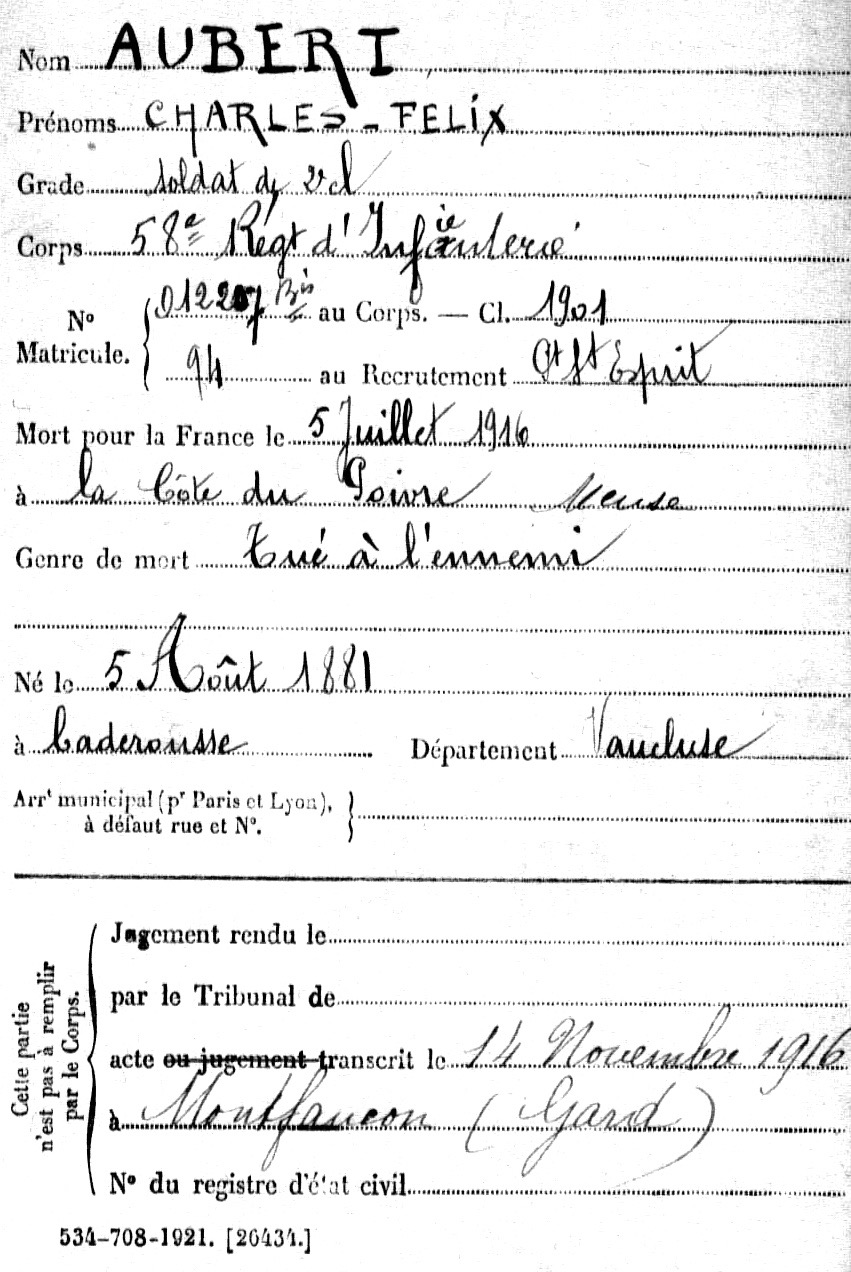 Nom AUBERT
Prénoms CHARLES-FELIX
Grade soldat de 2e cl
Corps 58e Régt d'Infanterie
No Matricule. 012207 Bis au Corps. — Cl. 1901
94 au Recrutement Pt St Esprit
Mort pour la France le 5 Juillet 1916
à la Côte du Poivre Meuse
Genre de mort Tué à l'ennemi
Né le 5 Août 1881
à Caderousse Département Vaucluse
Arrt municipal (pr Paris et Lyon),
à défaut rue et No.
Cette partie
n'est pas à remplir
par le Corps.
Jugement rendu le
par le Tribunal de
acte ou jugement transcrit le 14 Novembre 1916
à Montfaucon (Gard)
No du registre d'état civil
534-708-1921. [26434.]